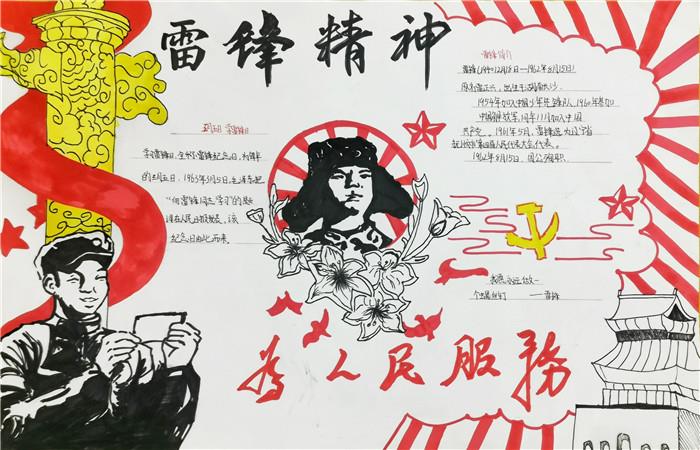 雷锋精神
三月五日 学雷锋日
学习雷锋日,全称学雷锋纪念日,为每年
的三月五日,1963年3月5日,毛泽东题
"向雷锋同志学习"的题
词在人民日报发表,该
纪念日由此而来。
雷锋简介
雷锋(1940年12月18日—1962年8月15日)
原名雷正兴,出生于湖南长沙。
1954年加入中国少年先锋队,1960年参加
中国解放军,同年11月加入中国
共产党。1961年5月,雷锋
人民代表大会代表。
1962年8月15日,因公殉职
我愿永远做一
个螺丝钉 ——雷锋
为人民服務